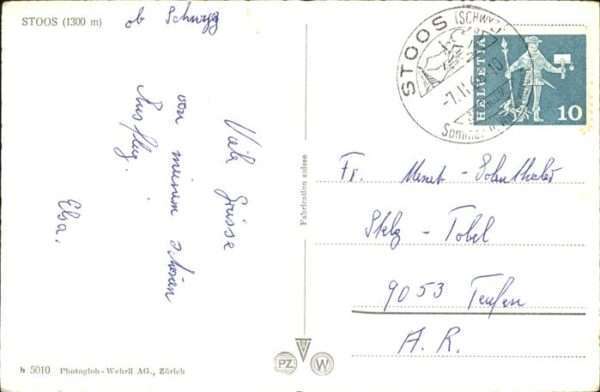 STOOS (1300 m)
ob Schwyz
Viele Grüsse
von meinem schönen
Ausflug.
Elsa.
Fabrication suisse
PZ
W
h 5010 Photoglob-Wehrli AG., Zürich
STOOS (SCHWYZ)
10
Sommer
HELVETIA
10
Fr. Menet-
Stelz-Tobel
9053 Teufen
A. R.